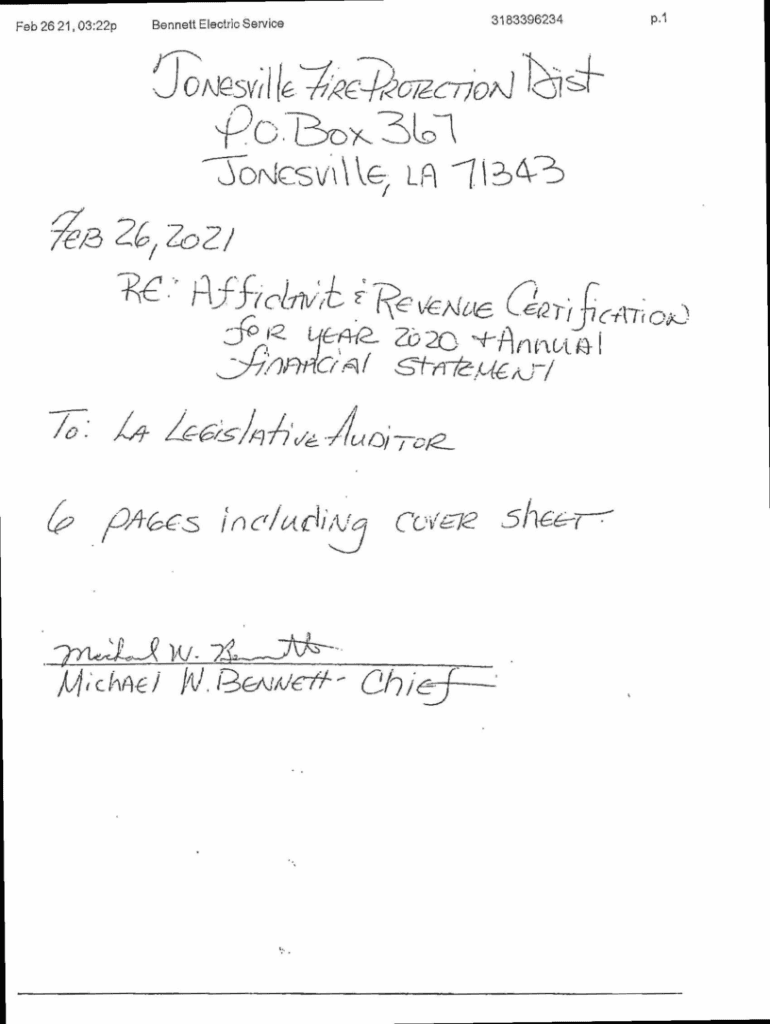 Feb 26 21, 03:22p Bennett Electric Service 3183396234 p.1
Jonesville Fire Protection Dist
P.O. Box 367
Jonesville, LA 71343
Feb 26, 2021
RE: Affidavit & Revenue Certification
for year 2020 + Annual
financial Statement
To: LA Legislative Auditor
6 pages including cover sheet.
Michael W. Bennett
Michael W. Bennett - Chief